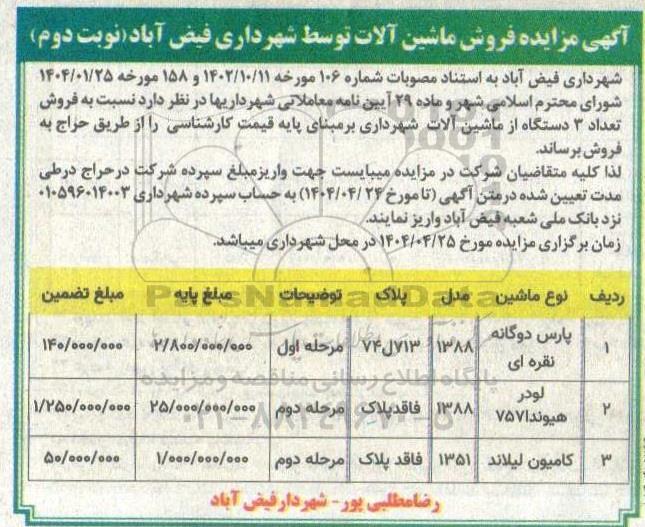 آگهی مزایده فروش ماشین آلات توسط شهرداری فیض آباد (نوبت دوم)
شهرداری فیض آباد به استناد مصوبات شماره ۱۰۶ مورخه ۱۴۰۲/۱۰/۱۱ و ۱۵۸ مورخه ۱۴۰۴/۰۱/۲۵
شورای محترم اسلامی شهر و ماده ۲۹ آیین نامه معاملاتی شهرداریها در نظر دارد نسبت به فروش
تعداد ۳ دستگاه از ماشین آلات شهرداری برمبنای پایه قیمت کارشناسی را از طریق حراج به
فروش برساند.
لذا کلیه متقاضیان شرکت در مزایده میبایست جهت واریزمبلغ سپرده شرکت درحراج درطی
مدت تعیین شده درمتن آگهی (تا مورخ ۱۴۰۴/۰۴/۲۴) به حساب سپرده شهرداری ۰۱۰۵۹۶۰۱۴۰۰۳
نزد بانک ملی شعبه فیض آباد واریز نمایند.
زمان برگزاری مزایده مورخ ۱۴۰۴/۰۴/۲۵ در محل شهرداری میباشد.
ردیف نوع ماشین مدل پلاک توضیحات مبلغ پایه مبلغ تضمین
۱ پارس دوگانه نقره ای ۱۳۸۸ ۷۱۳ل۷۴ مرحله اول ۲/۸۰۰/۰۰۰/۰۰۰ ۱۴۰/۰۰۰/۰۰۰
۲ لودر هیوندا۷۵۷ ۱۳۸۸ فاقدپلاک مرحله دوم ۲۵/۰۰۰/۰۰۰/۰۰۰ ۱/۲۵۰/۰۰۰/۰۰۰
۳ کامیون لیلاند ۱۳۵۱ فاقد پلاک مرحله دوم ۱/۰۰۰/۰۰۰/۰۰۰ ۵۰/۰۰۰/۰۰۰
رضامطلبی پور - شهردارفیض آباد
ParsNamadData
پایگاه اطلاع رسانی مناقصه و مزایده
۰۲۱-۸۸۳۴۹۶۷۰-۵